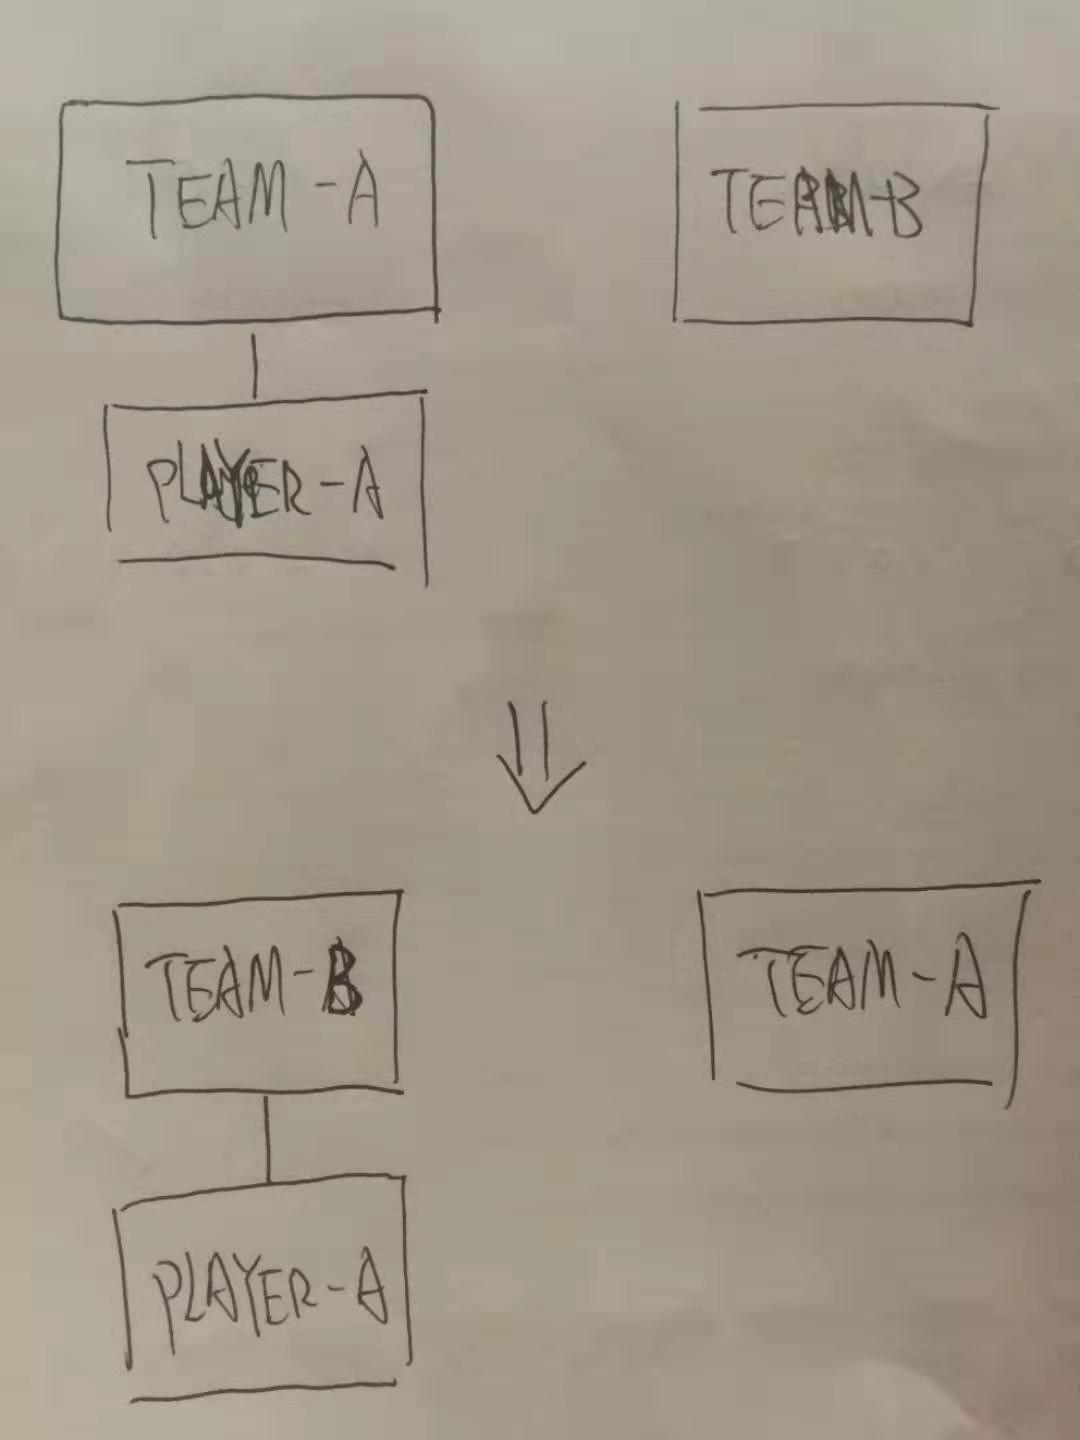 TEAM-A
TEAM-B
PLAYER-A
TEAM-B
TEAM-A
PLAYER-A